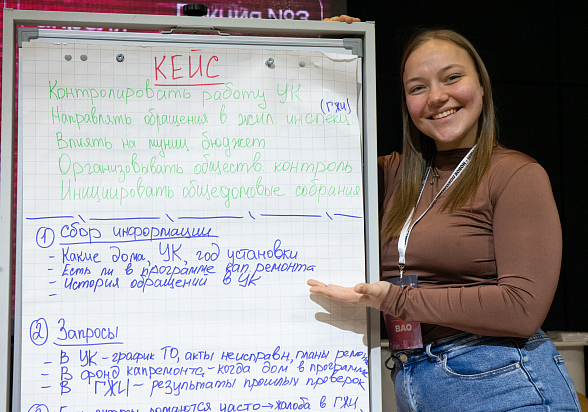 ЛЕКЦИЯ №3
КЕЙС
Контролировать работу УК
Направлять обращения в жил инспекц (ГЖИ)
Влиять на муниц бюджет
Организовывать обществ контроль
Инициировать общедомовые собрания
1 Сбор информации
- Какие дома, УК, год установки
- Есть ли в программе кап ремонта
- История обращений в УК
-
2 Запросы
- В УК - график ТО, акты неисправн, планы ремо
- В фонд капремонта, - когда дом в программе
- В ГЖИ - результаты прошлых проверок
3 ломаются часто → жалоба в ГЖИ,
ВАО